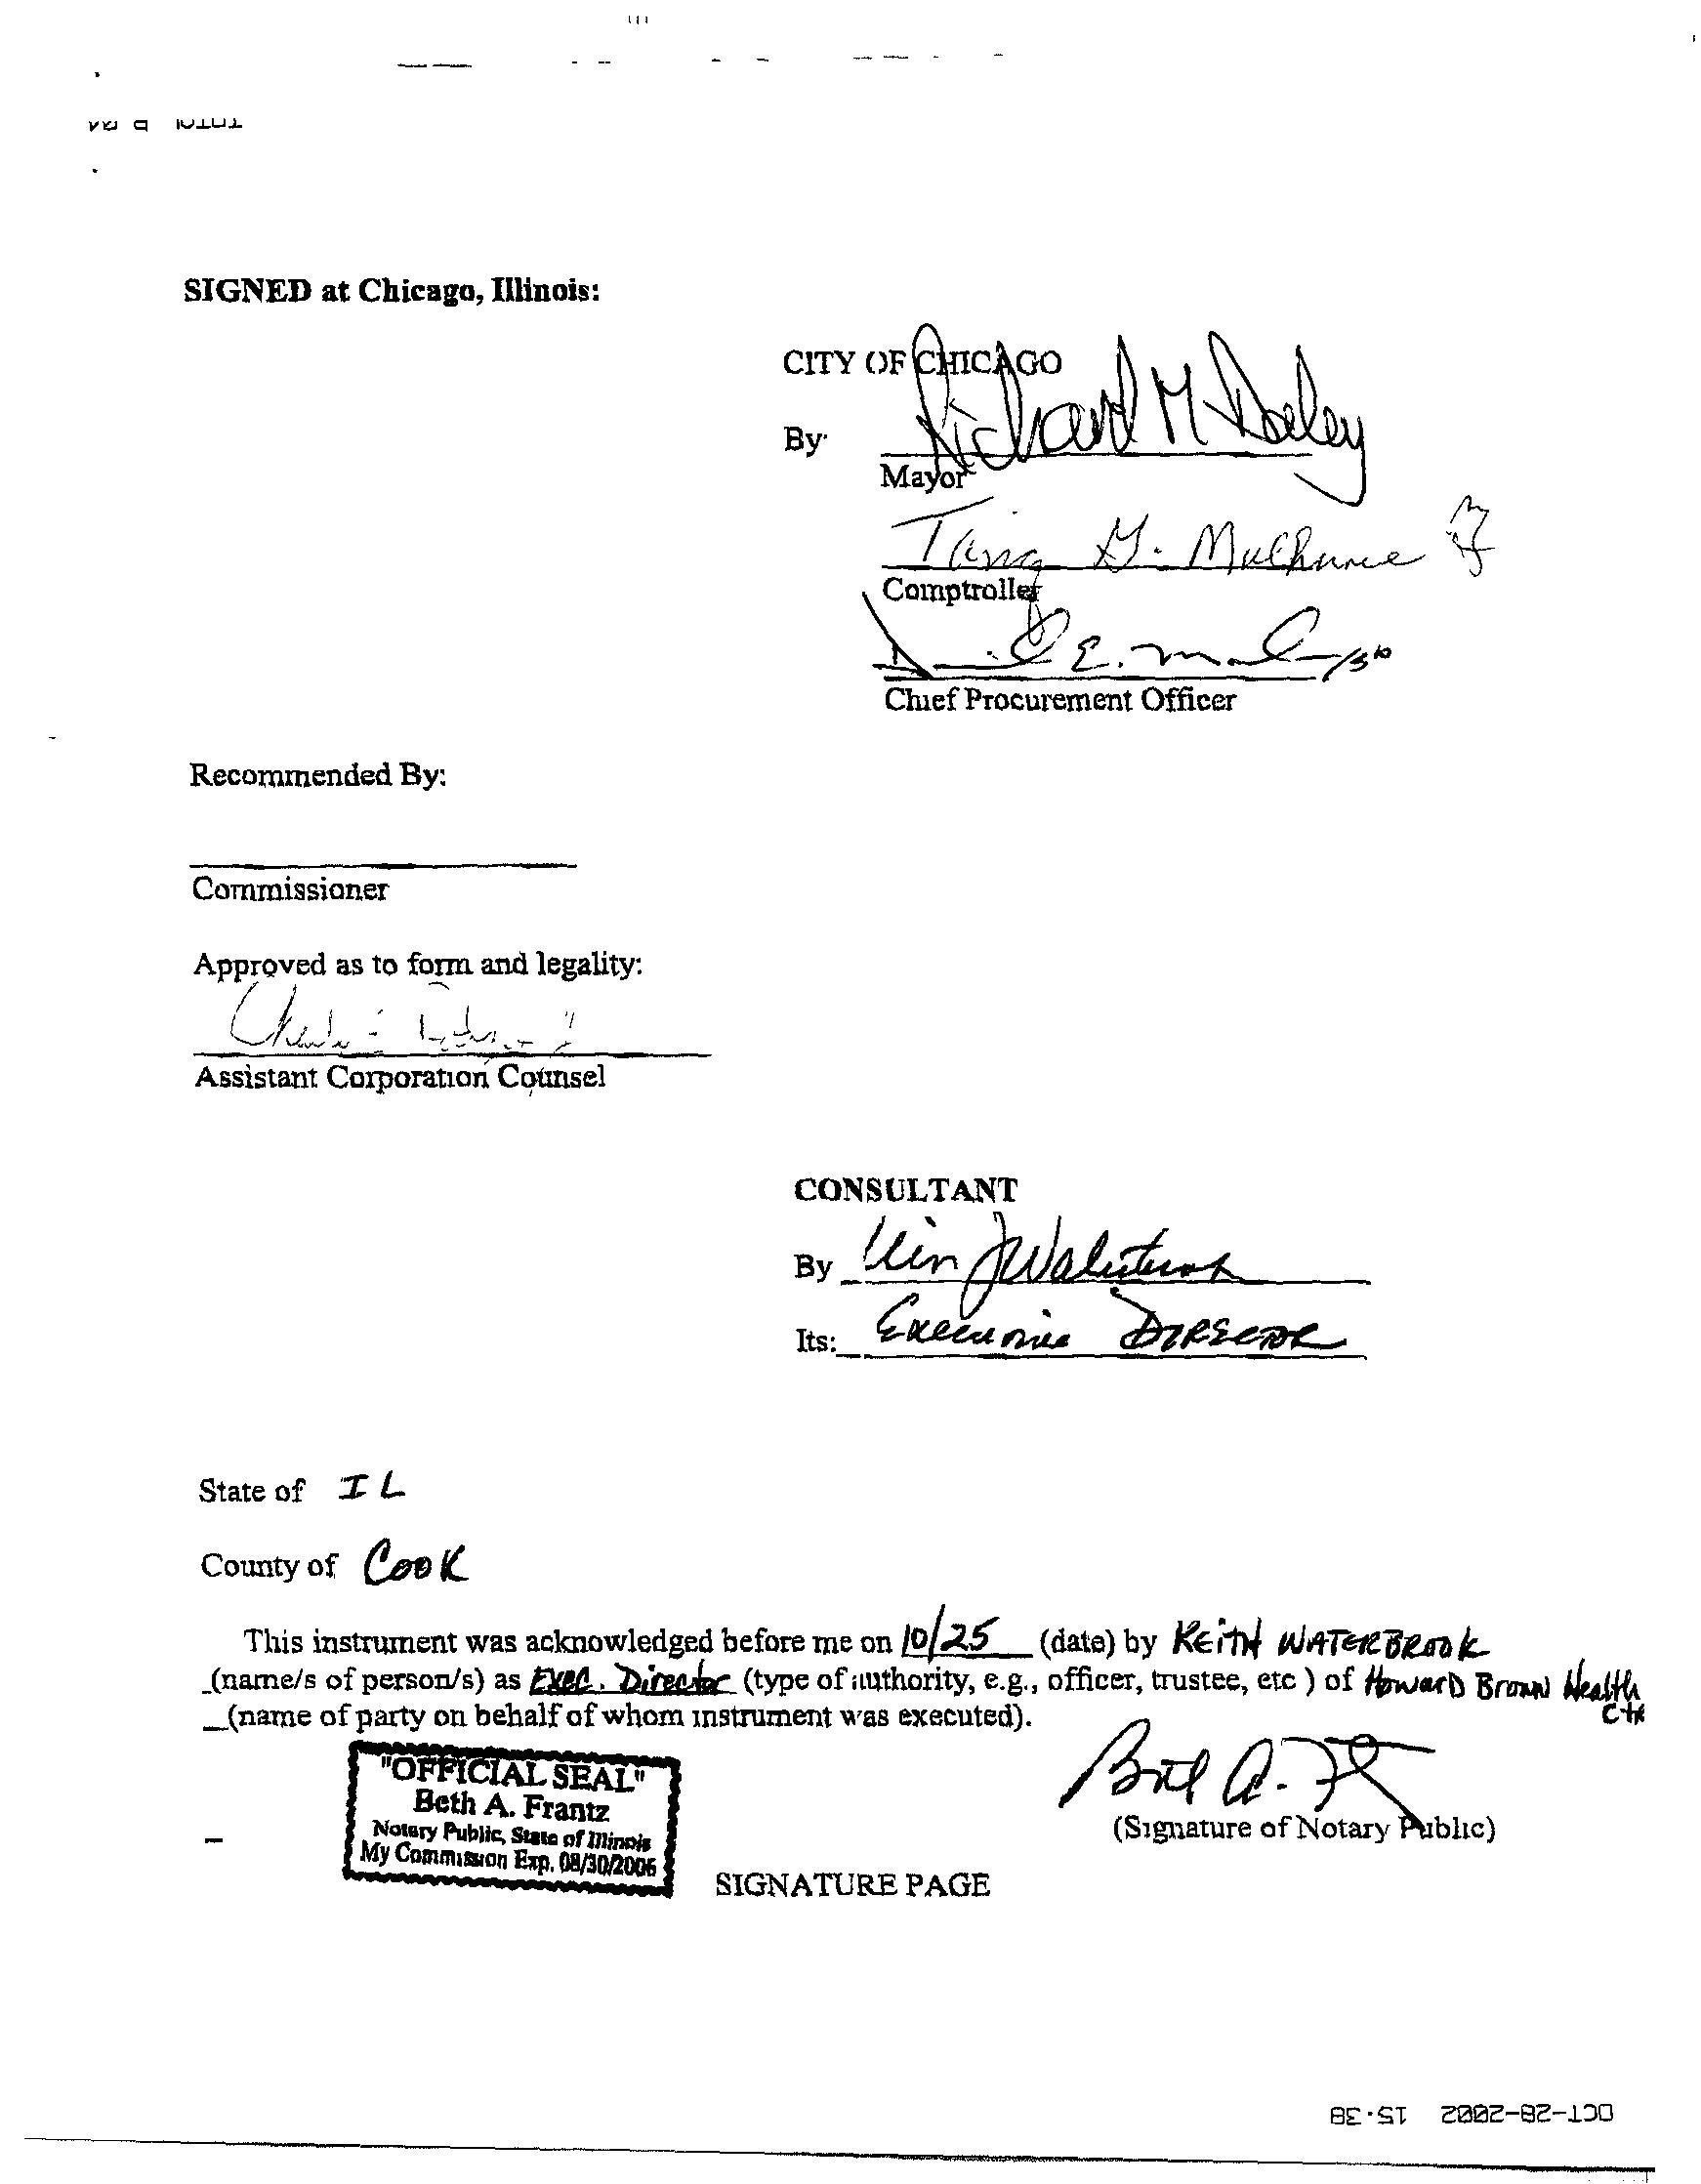 SIGNED at Chicago, Illinois:
CITY OF CHICAGO
By
Richard M Daley
Mayor
Comptroller
E.
Chief Procurement Officer
Recommended By:
Commissioner
Approved as to form and legality:
Assistant Corporation Counsel
CONSULTANT
By
Its: Executive DIRECTOR
State of IL
County of Cook
This instrument was acknowledged before me on 10/25 (date) by KEITH WATERBROOK
(name/s of person/s) as Exec. Director (type of authority, e.g., officer, trustee, etc ) of Howard Brown Health
Ctr
(name of party on behalf of whom instrument was executed).
"OFFICIAL SEAL"
Beth A. Frantz
Notary Public, State of Illinois
My Commission Exp. 08/30/2006
Beth A.
(Signature of Notary Public)
SIGNATURE PAGE
OCT-28-2002 15:38